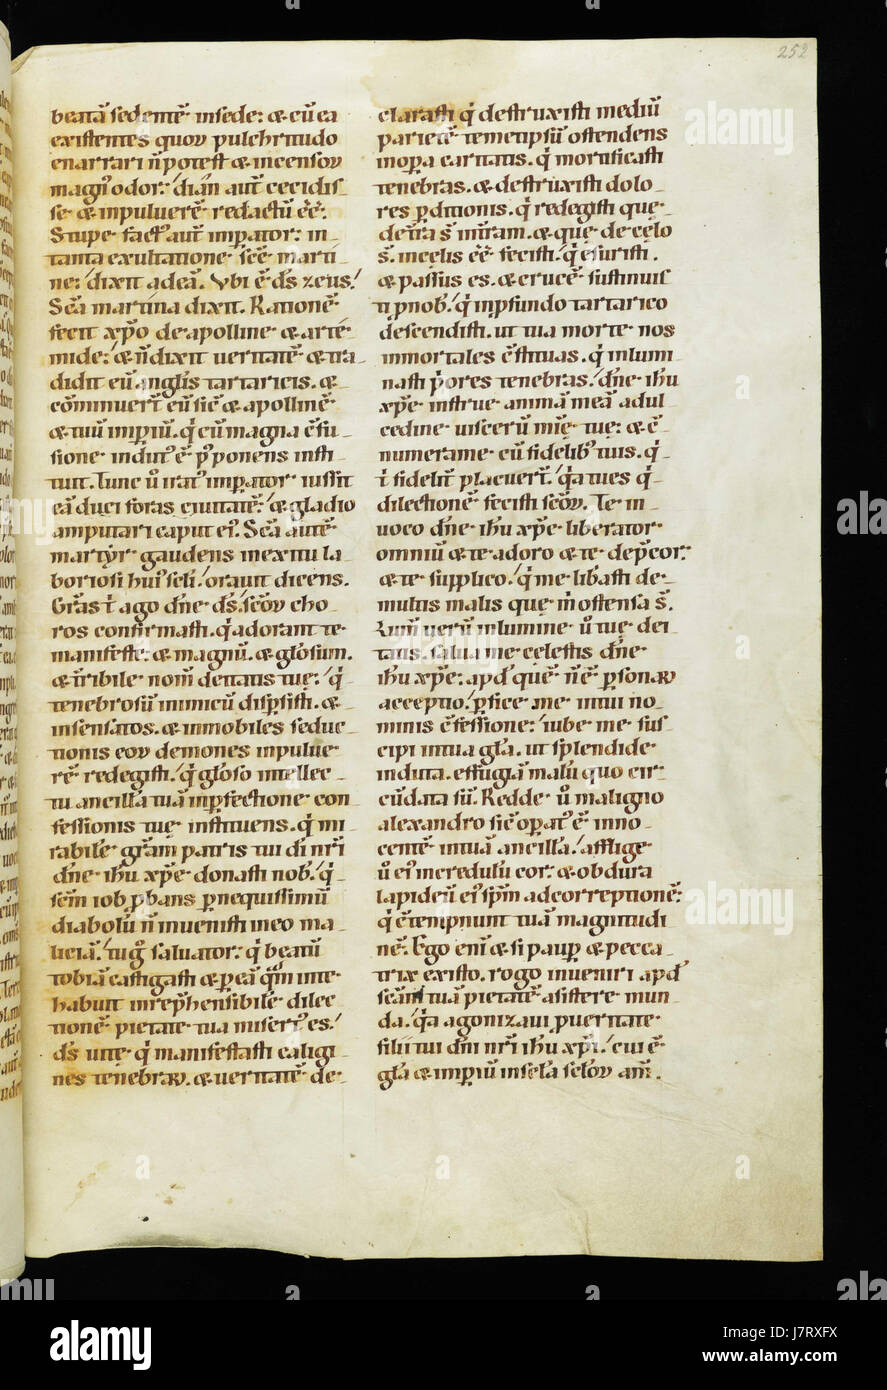 252
beatā sedentē in sede: & cū ea
existentes quoꝝ pulchritudo
enarrari n̄ potest & incensoꝝ
magn' odor: dianā aut̄ cecidis
se & in puluerē redactū eē.
Stupefact' aut̄ imperator: in
tanta exultatione scē marti
nę: dixit ad eā. Vbi ē d̄s zeus?
Scā martina dixit. Rationē
fecit xp̄o de apolline & arte
mide: & n̄ dixit ueritatē & tra
didit eū anglis tartaricis. &
cōminuert̄ eū sic & apollinē
& tuū imꝑiū. q̄ cū magna cfu
sione indut' ē ꝑponens insti
tuit. Tunc ū irat' imperator iussit
eā duci foras ciuitatē: & gladio
amputari caput ei'. Scā autē
martyr gaudens in exitu la
boriosi hui' scli. orauit dicens.
Gr̄as t' ago dn̄e d̄s. scōꝝ cho
ros confirmasti. q̄ adorant te
manifeste: & magnū. & glosum.
& t'ribile nom̄ deitatis tuę: q̄
tenebrosū inimicū disp̄sisti. &
insensatos. & inmobiles seduc
tionis eoꝝ demones in pulue
rē redegisti. q̄ gl̄oso intellec
tu ancillā tuā in ꝑfectione con
fessionis tuę instituens. q̄ mi
rabilē gr̄am patris tui di nr̄i
dn̄e ih̄u xp̄e donasti nob̄. q̄
scm̄ iob ꝓbans ꝑ nequissimū
diabolū n̄ inuenisti in eo ma
liciā. tu g̊ saluator: q̄ beatū
tobiā castigasti & ꝑ eā q̄m in te
habuit inrep̄hensibilē dilec
tionē pietate tua misert' es.
d̄s uiuę q̄ manifestasti caligi
nes tenebraꝝ. & ueritatē de
clarasti q̄ destruxisti mediū
parietē temetipsū ostendens
in oꝑa caritatis. q̄ mortificasti
tenebras. & destruxisti dolo
res ꝑditionis. q̄ redegisti quę
de t'ra s̄ in t'ram. & que de cęlo
s̄. in celis eē fecisti. q̄ esuristi.
& passus es. & crucē sustinuis
ti ꝓ nob̄. q̄ in ꝓfundo tartarico
descendisti. ut tua morte nos
inmortales c̄stituas. q̄ inlumi
nasti p̄ores tenebras. dn̄e ih̄u
xp̄e instrue animā meā in dul
cedine uiscerū mīę tuę: & c̄
numera me cū fidelib' tuis. q̄
t̄ fidelit̄ placuert̄. q̄a tu es q̄
dilectionē fecisti scōꝝ. Te in
uoco dn̄e ih̄u xp̄e liberator
omniū & te adoro & te dep̄cor:
& te supplico. q̄ me lib̄asti de
multis malis quę m̄ ostensa s̄.
Lum̄ uerū in lumine ū tuę dei
tatis. salua me cęlestis dn̄e
ih̄u xp̄e: apd' quē n̄ ē ꝑsonaꝝ
acceptio. ꝑfice me in tui no
minis c̄fessione: iube me sus
cipi in tua gl̄a. ut splendide
induta. effugiā malū quo cir
cūdata sū. Redde ū maligno
alexandro sic oꝑat' ē in inno
centē in tuā ancillā. afflige
ū ei' incredulū cor: & obdura
lapideū ei' sp̄m ad correptionē:
q̄ c̄tempnunt tuā magnitudi
nē. Ego eni & si paup̄ & pecca
trix existo. rogo inueniri apd'
scām tuā pietatē asistere mun
da. q̄a agonizaui ꝓ ueritate
filii tui dn̄i nr̄i ih̄u xp̄i. cui ē
gl̄a & imꝑiū in scl̄a scl̄oꝝ am̄.
alamy
alamy
alamy
alamy
alamy
Image ID: J7RXFX
www.alamy.com